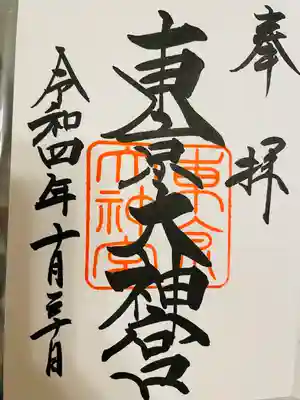 奉拝
東京大神宮
東京大神宮
令和四年十月三十日